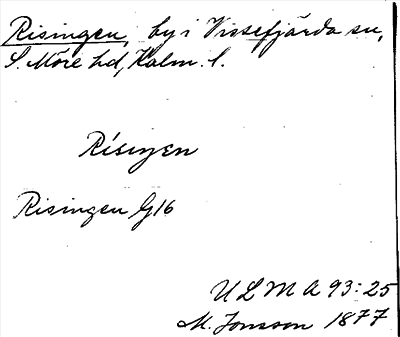 Risingen, by i Vissefjärda sn,
S. Möre hd, Kalm. l.
Rísiŋen
Risingen G16
ULMA 93:25
M. Jonsson 1877